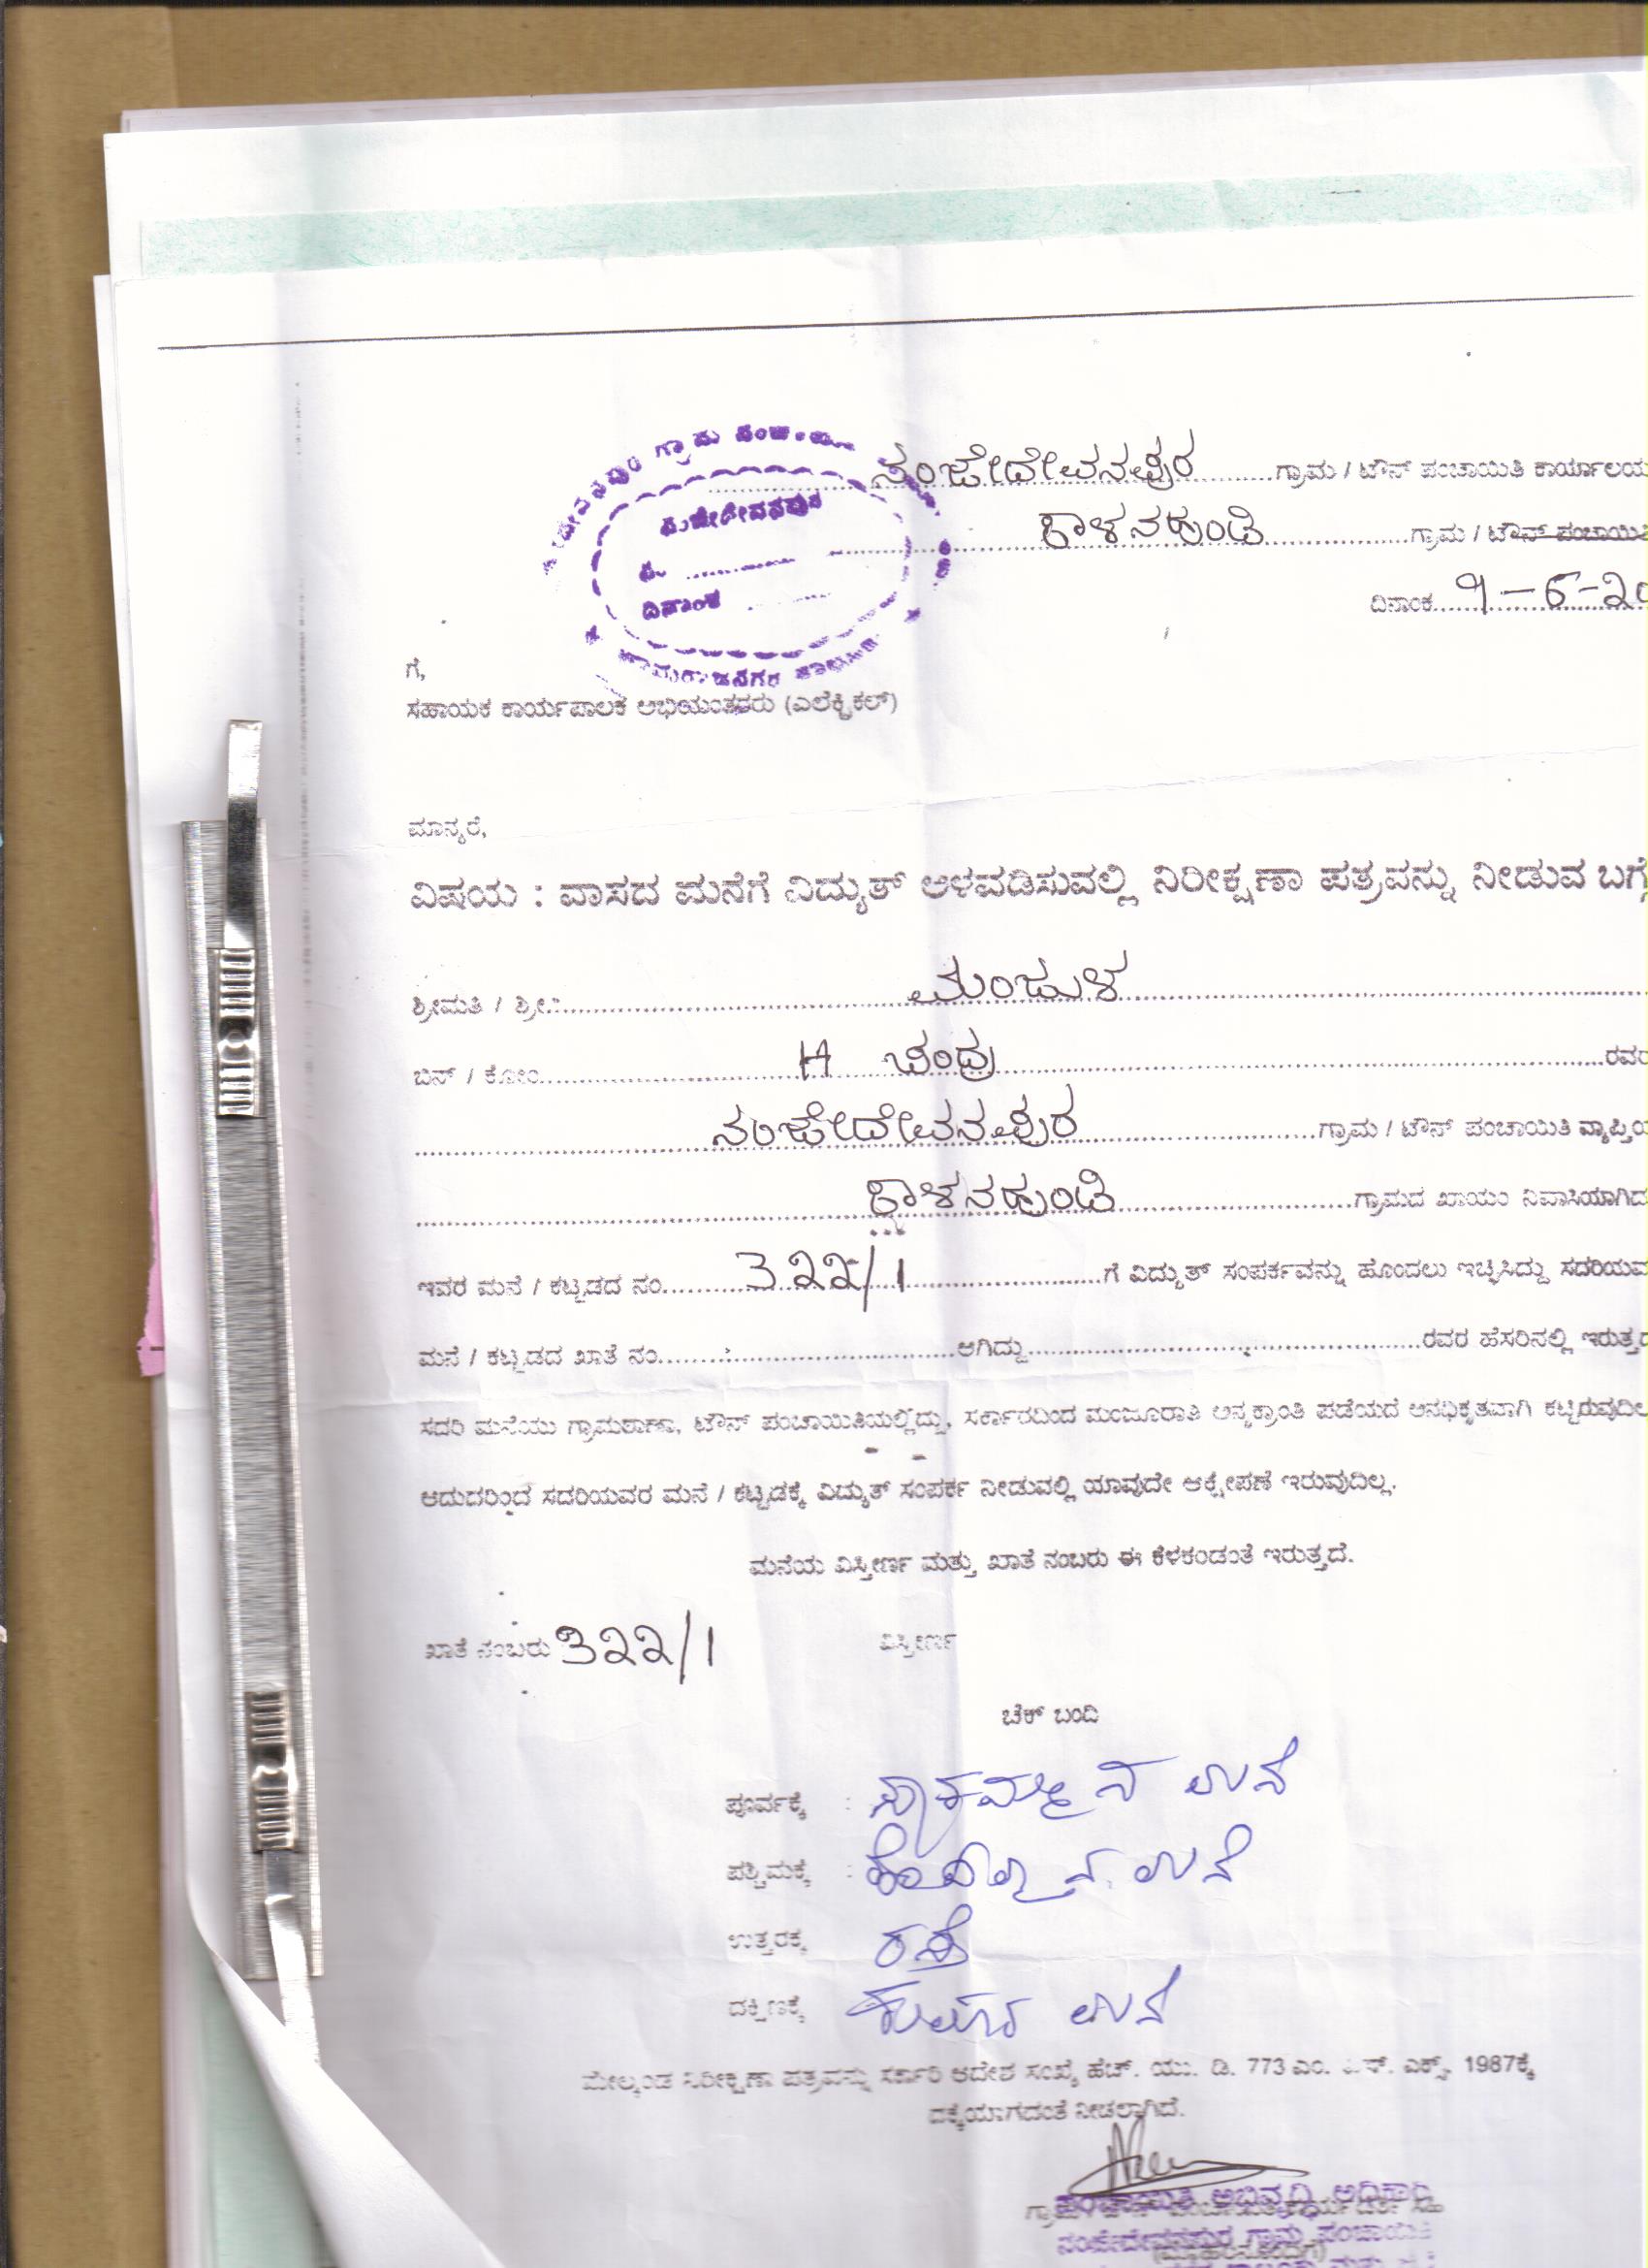 ನಂಜೇದೇವನಪುರ ಗ್ರಾಮ / ಟೌನ್ ಪಂಚಾಯಿತಿ ಕಾರ್ಯಾಲಯ
ಕಾಳನಹುಂಡಿ ಗ್ರಾಮ / ಟೌನ್ ಪಂಚಾಯಿತಿ
ನಂಜೇದೇವನಪುರ
ದಿನಾಂಕ
ದಿನಾಂಕ ೯-೬-೨೦
ಗೆ,
ಸಹಾಯಕ ಕಾರ್ಯಪಾಲಕ ಅಭಿಯಂತರರು (ಎಲೆಕ್ಟ್ರಿಕಲ್)
ಮಾನ್ಯರೆ,
ವಿಷಯ : ವಾಸದ ಮನೆಗೆ ವಿದ್ಯುತ್ ಅಳವಡಿಸುವಲ್ಲಿ ನಿರೀಕ್ಷಣಾ ಪತ್ರವನ್ನು ನೀಡುವ ಬಗ್ಗೆ
ಶ್ರೀಮತಿ / ಶ್ರೀ. ಮಂಜುಳ
ಬಿನ್ / ಕೋಂ H ಚಂದ್ರ ರವರ
ನಂಜೇದೇವನಪುರ ಗ್ರಾಮ / ಟೌನ್ ಪಂಚಾಯಿತಿ ವ್ಯಾಪ್ತಿಯ
ಕಾಳನಹುಂಡಿ ಗ್ರಾಮದ ಖಾಯಂ ನಿವಾಸಿಯಾಗಿದ
ಇವರ ಮನೆ / ಕಟ್ಟಡದ ನಂ. ೩೨೨/1 ಗೆ ವಿದ್ಯುತ್ ಸಂಪರ್ಕವನ್ನು ಹೊಂದಲು ಇಚ್ಛಿಸಿದ್ದು ಸದರಿಯವ
ಮನೆ / ಕಟ್ಟಡದ ಖಾತೆ ನಂ. ಆಗಿದ್ದು ರವರ ಹೆಸರಿನಲ್ಲಿ ಇರುತ್ತದ
ಸದರಿ ಮನೆಯು ಗ್ರಾಮಠಾಣಾ, ಟೌನ್ ಪಂಚಾಯಿತಿಯಲ್ಲಿದ್ದು, ಸರ್ಕಾರದಿಂದ ಮಂಜೂರಾತಿ ಅನ್ಯಕ್ರಾಂತಿ ಪಡೆಯದೆ ಅನಧಿಕೃತವಾಗಿ ಕಟ್ಟಿರುವುದಿಲ
ಆದುದರಿಂದ ಸದರಿಯವರ ಮನೆ / ಕಟ್ಟಡಕ್ಕೆ ವಿದ್ಯುತ್ ಸಂಪರ್ಕ ನೀಡುವಲ್ಲಿ ಯಾವುದೇ ಆಕ್ಷೇಪಣೆ ಇರುವುದಿಲ್ಲ.
ಮನೆಯ ವಿಸ್ತೀರ್ಣ ಮತ್ತು ಖಾತೆ ನಂಬರು ಈ ಕೆಳಕಂಡಂತೆ ಇರುತ್ತದೆ.
ಖಾತೆ ನಂಬರು ೩೨೨/1 ವಿಸ್ತೀರ್ಣ
ಚೆಕ್ ಬಂದಿ
ಪೂರ್ವಕ್ಕೆ : ಸಾಕಮ್ಮನ ಮನೆ
ಪಶ್ಚಿಮಕ್ಕೆ : ಮನೆ
ಉತ್ತರಕ್ಕೆ ರಸ್ತೆ
ದಕ್ಷಿಣಕ್ಕೆ ಕುಮಾರ ಮನೆ
ಮೇಲ್ಕಂಡ ನಿರೀಕ್ಷಣಾ ಪತ್ರವನ್ನು ಸರ್ಕಾರಿ ಆದೇಶ ಸಂಖ್ಯೆ ಹೆಚ್. ಯು. ಡಿ. 773 ಎಂ. ಎನ್. ಎಕ್ಸ್. 1987ಕ್ಕೆ
ದಕ್ಕೆಯಾಗದಂತೆ ನೀಡಲಾಗಿದೆ.
ಪಂಚಾಯಿತಿ ಅಭಿವೃದ್ಧಿ ಅಧಿಕಾರಿ
ನಂಜೇದೇವನಪುರ ಗ್ರಾಮ ಪಂಚಾಯಿತಿ